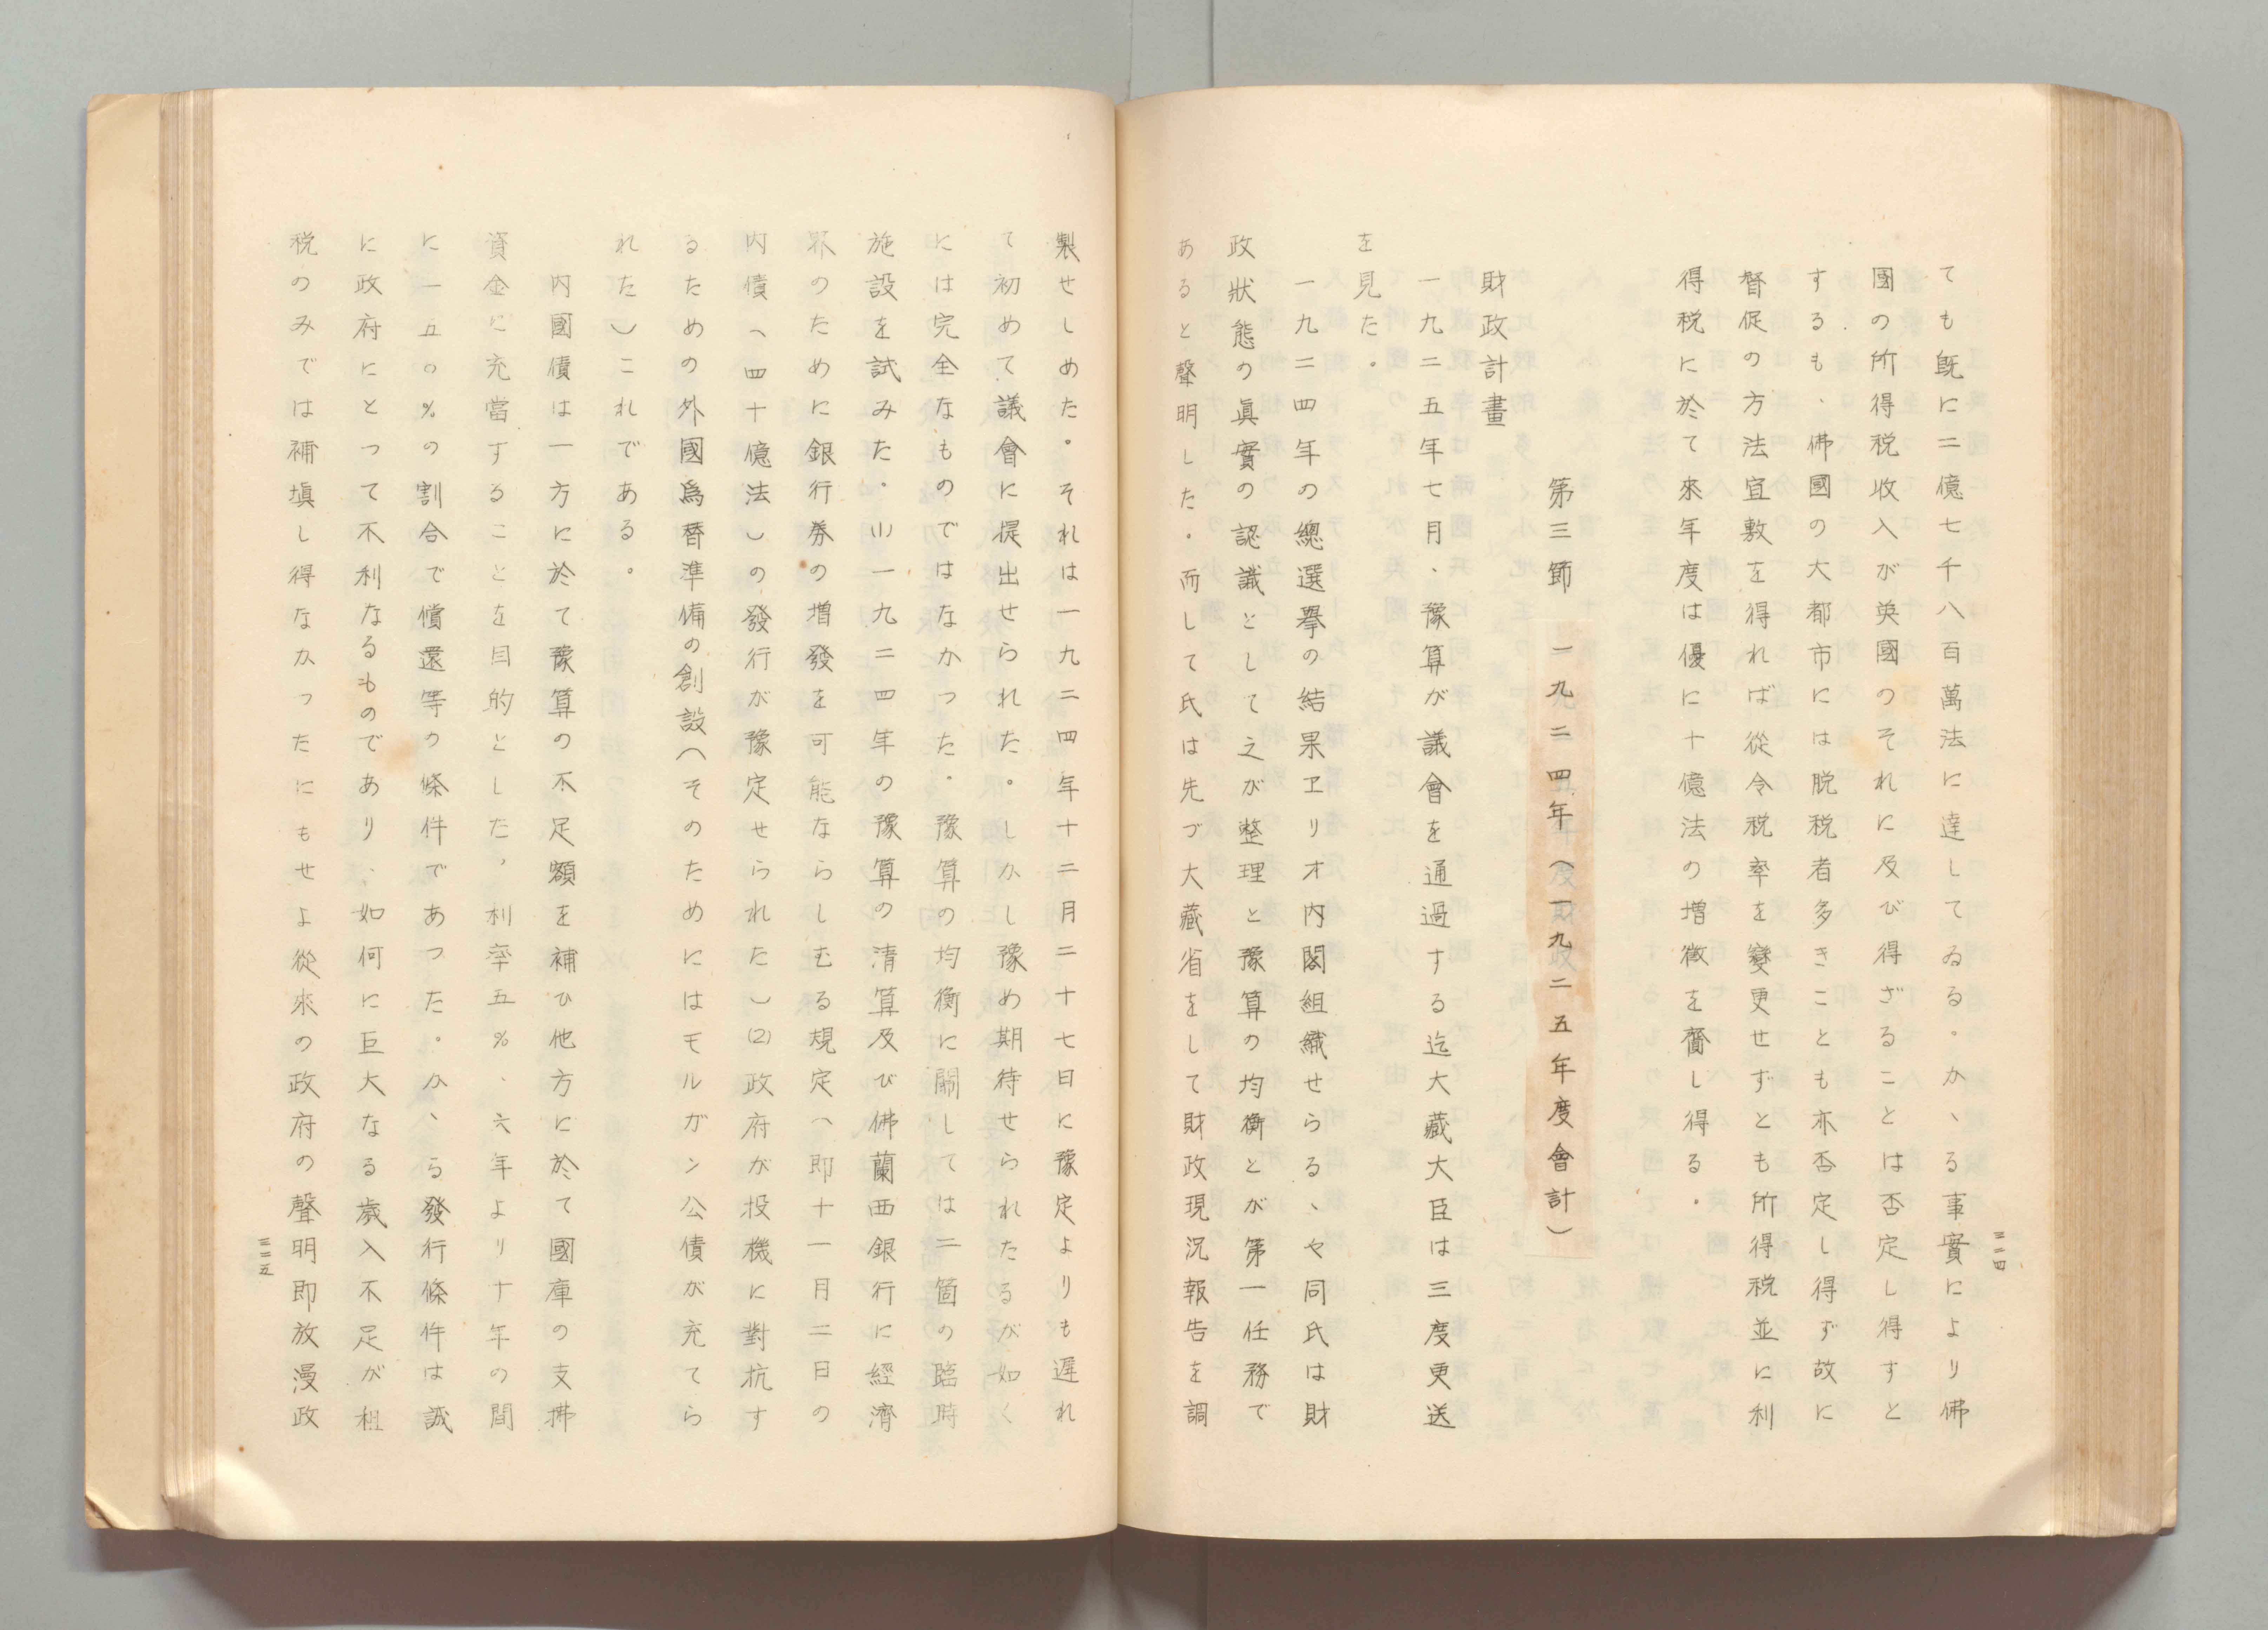 ても既に二億七千八百萬法に達してゐる。かゝる事實により佛
國の所得税收入が英國のそれに及び得ざることは否定し得すと
するも、佛國の大都市には脱税者多きことも亦否定し得ず故に
督促の方法宜敷を得れば從令税率を變更せずとも所得税並に利
得税に於て來年度は優に十億法の増徴を齎し得る。
第三節 一九二四年(一九二五年度會計)
財政計畫
一九二五年七月、豫算が議會を通過する迄大藏大臣は三度更迭
を見た。
一九二四年の總選擧の結果エリオ内閣組織せらるゝや同氏は財
政狀態の眞實の認識として之が整理と豫算の均衡とが第一任務で
あると聲明した。而して氏は先づ大藏省をして財政現況報告を調
三二四
製せしめた。それは一九二四年十二月二十七日に豫定よりも遲れ
て初めて議會に提出せられた。しかし豫め期待せられたるが如く
には完全なものではなかつた。豫算の均衡に關しては二箇の臨時
施設を試みた。(1)一九二四年の豫算の清算及び佛蘭西銀行に經濟
界のために銀行券の増發を可能ならしむる規定(即十一月二日の
内債(四十億法)の發行が豫定せられた)(2)政府が投機に對抗す
るための外國爲替準備の創設(そのためにはモルガン公債が充てら
れた)これである。
内國債は一方に於て豫算の不足額を補ひ他方に於て國庫の支拂
資金に充當することを目的とした，利率五％、六年より十年の間
に一五〇％の割合で償還等の條件であつた。かゝる發行條件は誠
に政府にとつて不利なるものであり、如何に巨大なる歳入不足が租
税のみでは補塡し得なかつたにもせよ從來の政府の聲明即放漫政
三二五